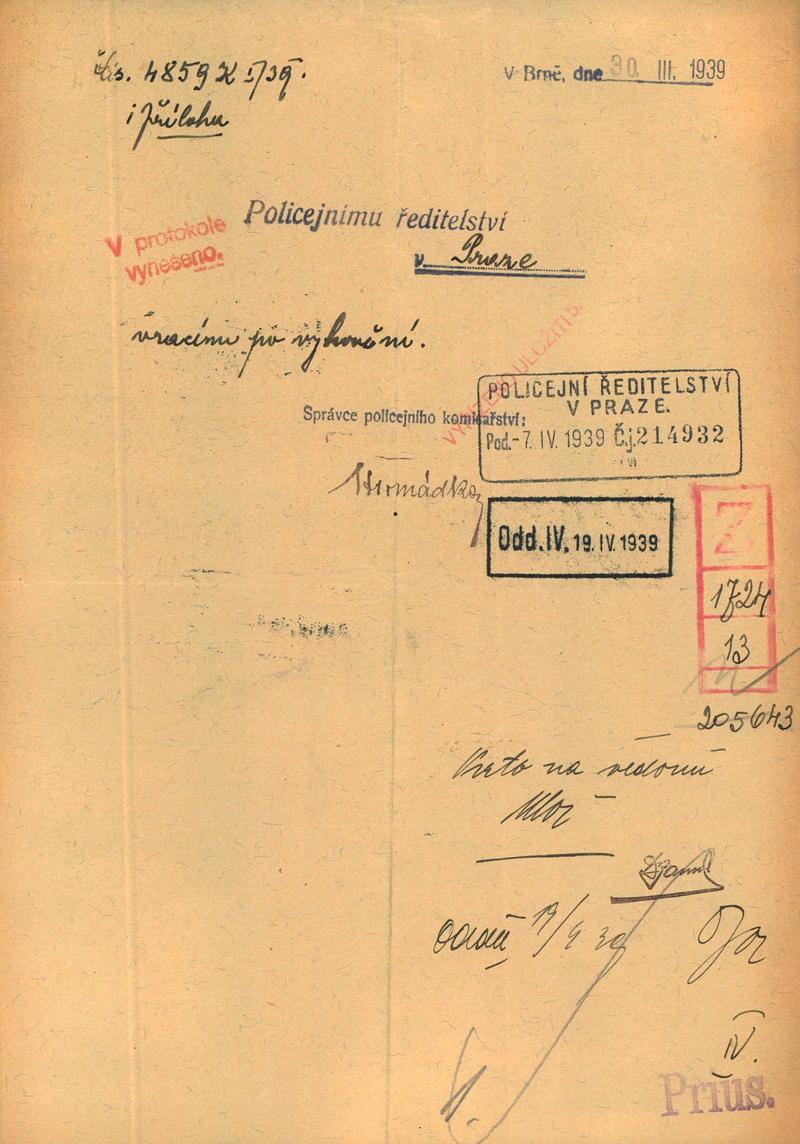 čís. 4859 I/39.
V Brně, dne 30. III. 1939
1 přílohu
Policejnímu ředitelství
v Praze
V protokole
vyneseno.
vracím po vykonání.
Správce policejního komisařství:
POLICEJNÍ ŘEDITELSTVÍ
V PRAZE.
Pod. -7. IV. 1939 Čj. 214932
Odd. IV. 19. IV. 1939
Z
1724
13
205643
Vzato na vědomí
Ulož
19/4 39
IV.
Prius.